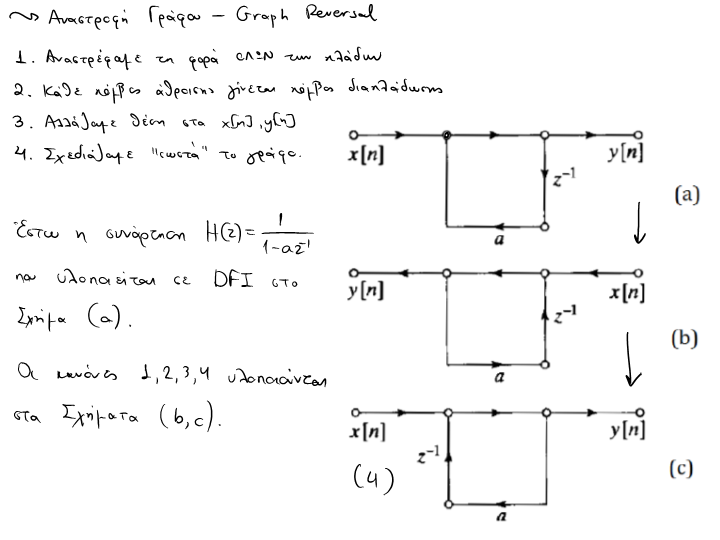 ~> Αναστροφή Γράφου - Graph Reversal
1. Αναστρέφαμε τη φορά ΟΛΩΝ των κλάδων
2. Κάθε κόμβος άθροισης γίνεται κόμβος διακλάδωσης
3. Αλλάζαμε θέση στα x[n], y[n]
4. Σχεδιάζαμε "σωστά" το γράφο.
x[n] y[n]
z⁻¹
a
(a)
Έστω η συνάρτηση H(z) = 1 / (1-az⁻¹)
που υλοποιείται σε DFI στο
Σχήμα (a).
y[n] x[n]
z⁻¹
a
(b)
Οι κανόνες 1,2,3,4 υλοποιούνται
στα Σχήματα (b,c).
x[n] y[n]
z⁻¹
a
(c)
(4)